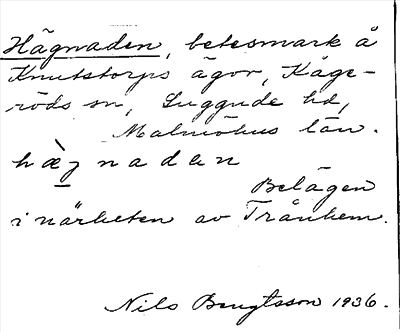 Hägnaden, betesmark å
Knutstorps ägor, Kåge-
röds sn, Luggude hd,
Malmöhus län.
hæ̀gnaden
Belägen
i närheten av Trånhem.
Nils Bengtsson 1936.